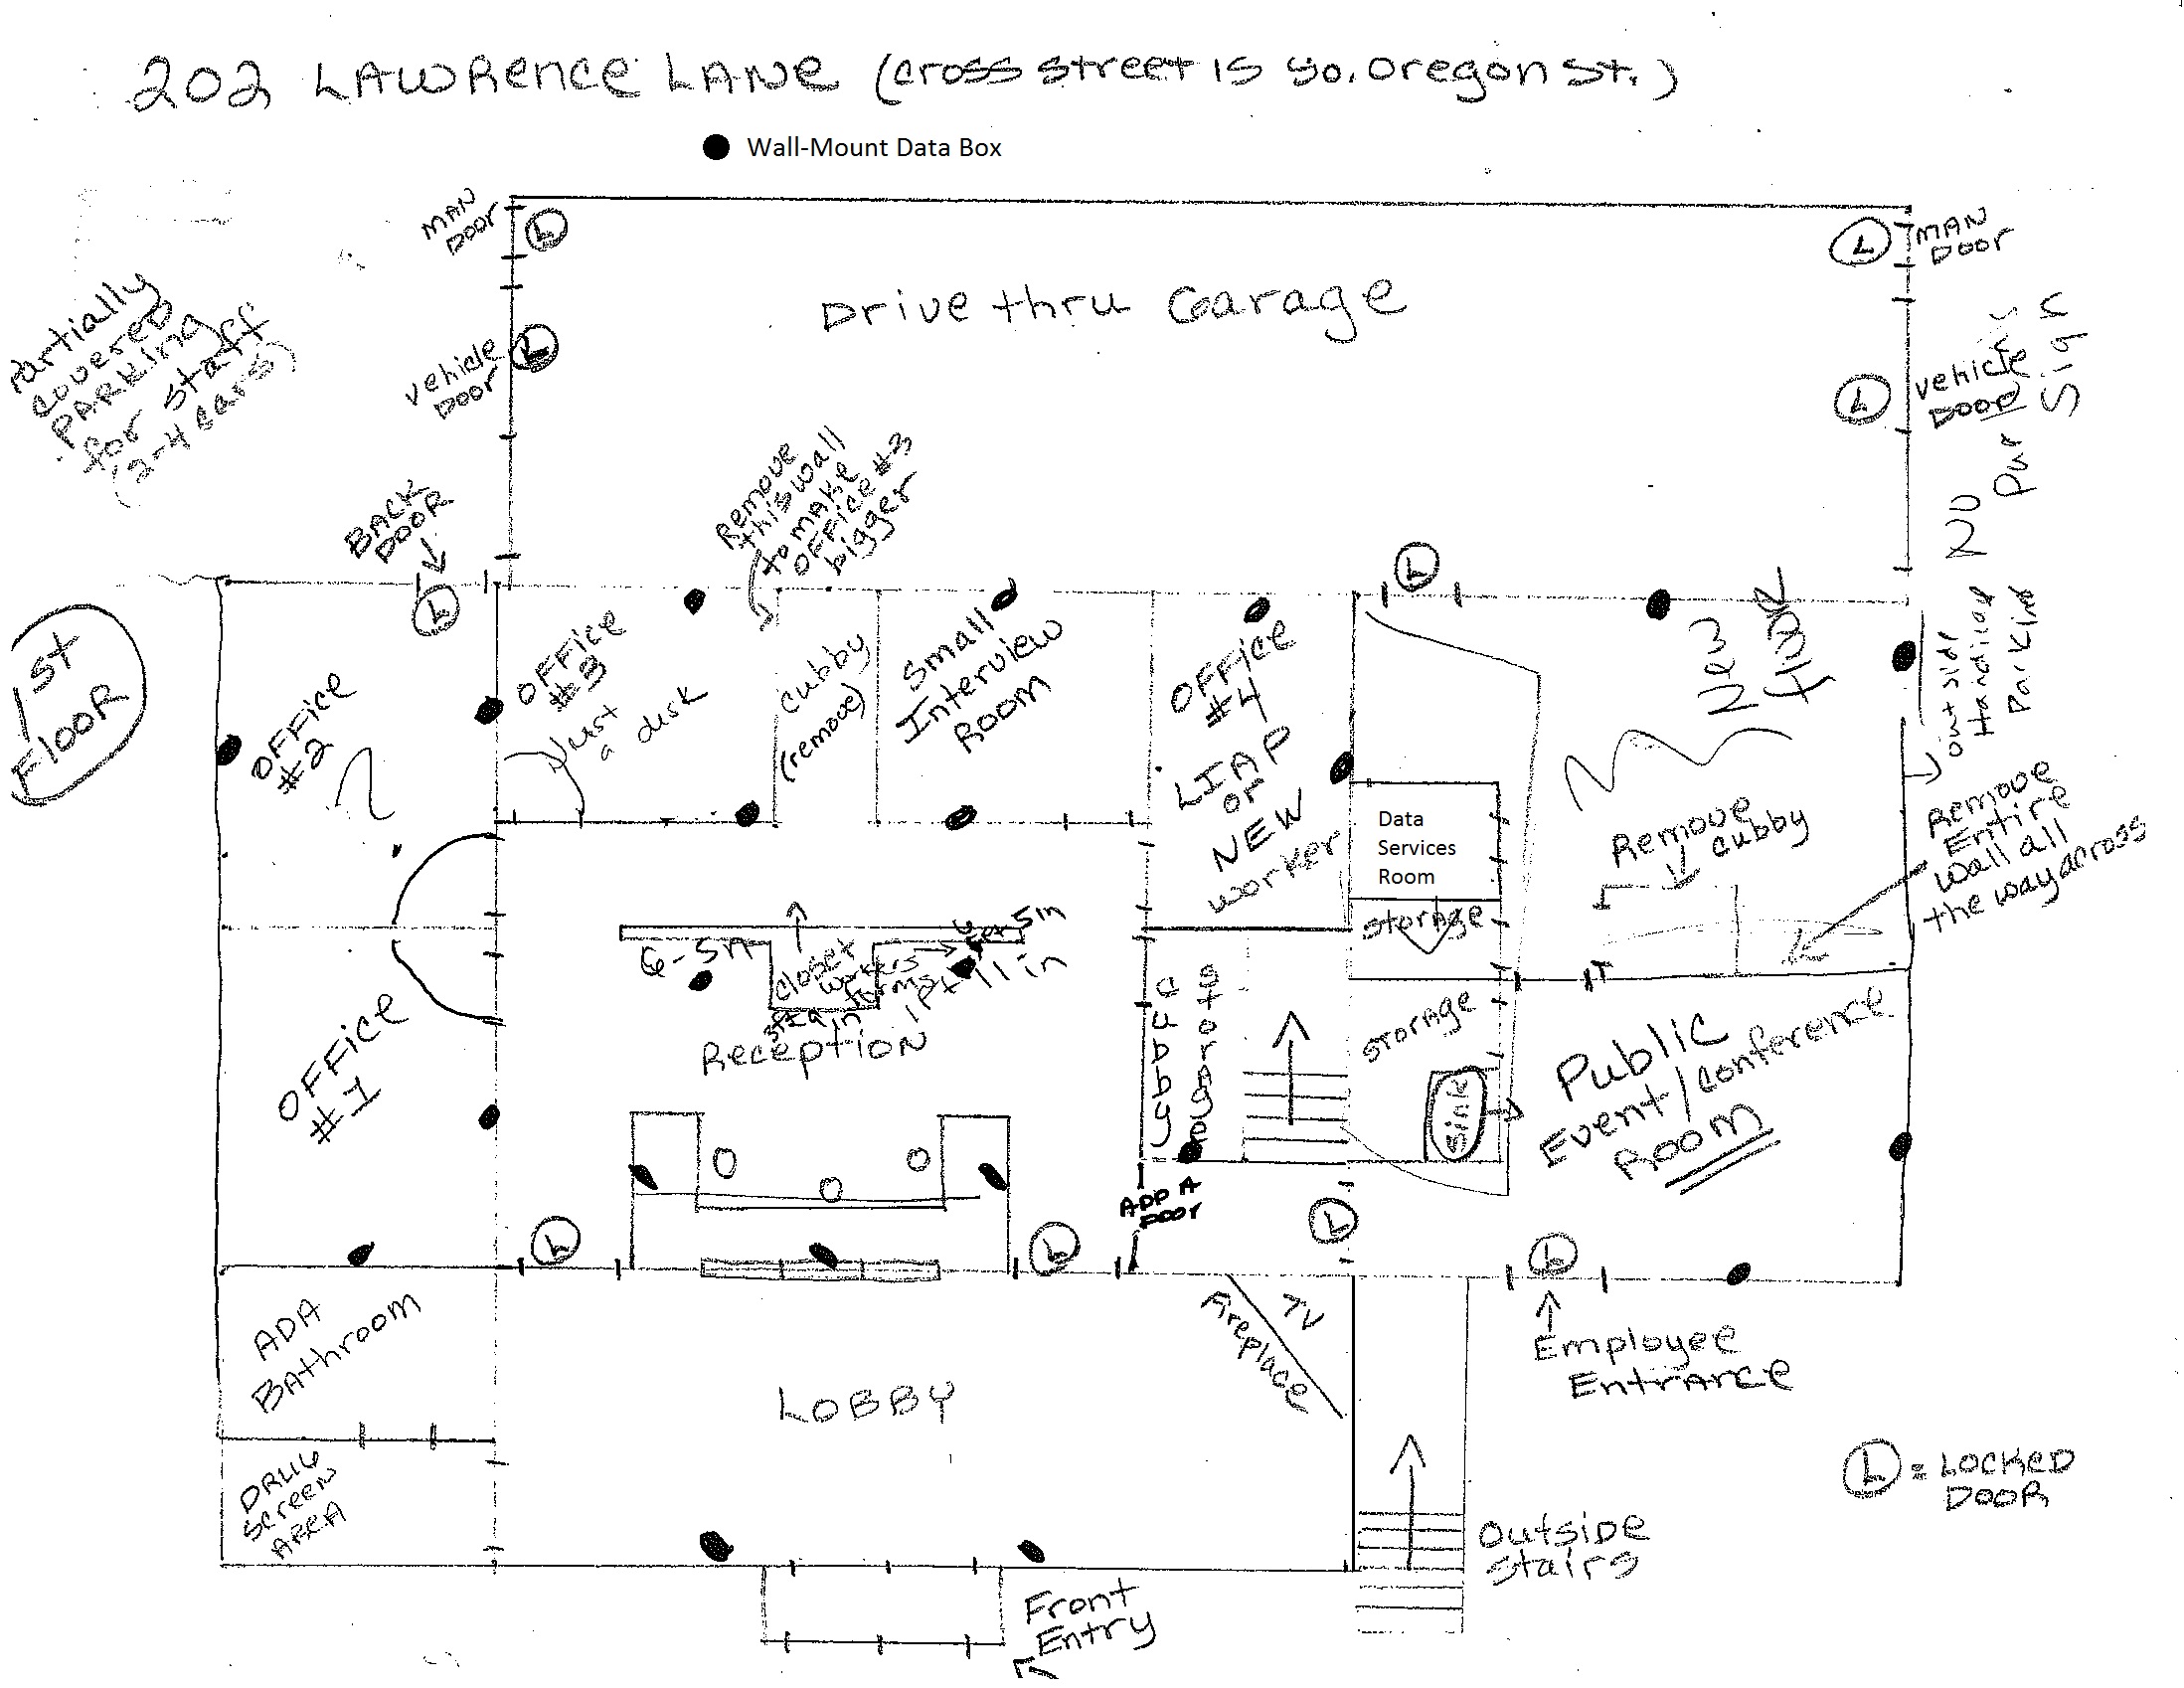 202 LAWRence LANE (cross street is so. Oregon St.)
Wall-Mount Data Box
MAN
DOOR
L
L
MAN
DOOR
Drive thru Garage
Partially
covered
PARKing
for staff
(2-4 cars)
vehicle
DOOR
L
L
vehicle
DOOR
Sign
BACK
DOOR
L
Remove
this wall
to make
OFFice #3
bigger
L
1st
FLOOR
OFFice
#2
OFFice
#3
Just
a desk
cubby
(remove)
Small
Interview
Room
OFFice
#4
LIAP
or
NEW
worker
New
outside
Handicap
Parking
Data
Services
Room
Remove
cubby
Remove
Entire
wall all
the way across
Storage
6-5in
closet
workers
forms
1pt 11 in
Reception
OFFice
#1
cubby
storage
Storage
Sink
Public
Event/conference
Room
ADD A
DOOR
L
L
L
L
ADA
Bathroom
Fireplace
TV
Employee
Entrance
LOBBY
DRUG
screen
AREA
L = LOCKED
DOOR
Outside
stairs
Front
Entry